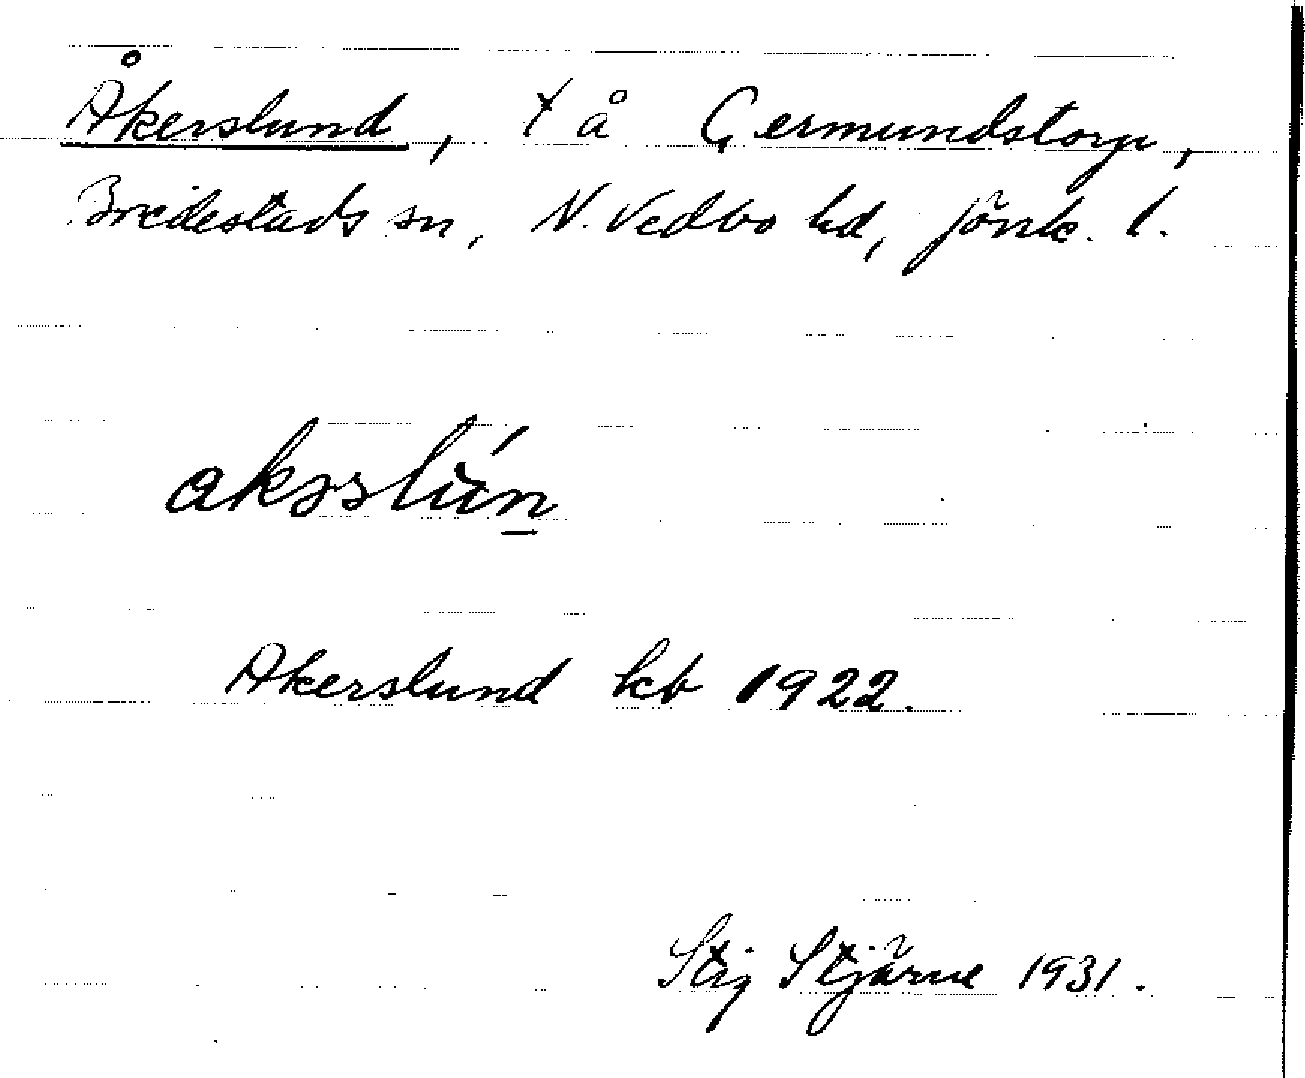 Åkerslund, t å Germundstorp,
Bredestads sn, N. Vedbo hd, Jönk. l.
Åkerslund kb 1922.
Stig Stjärne 1931.